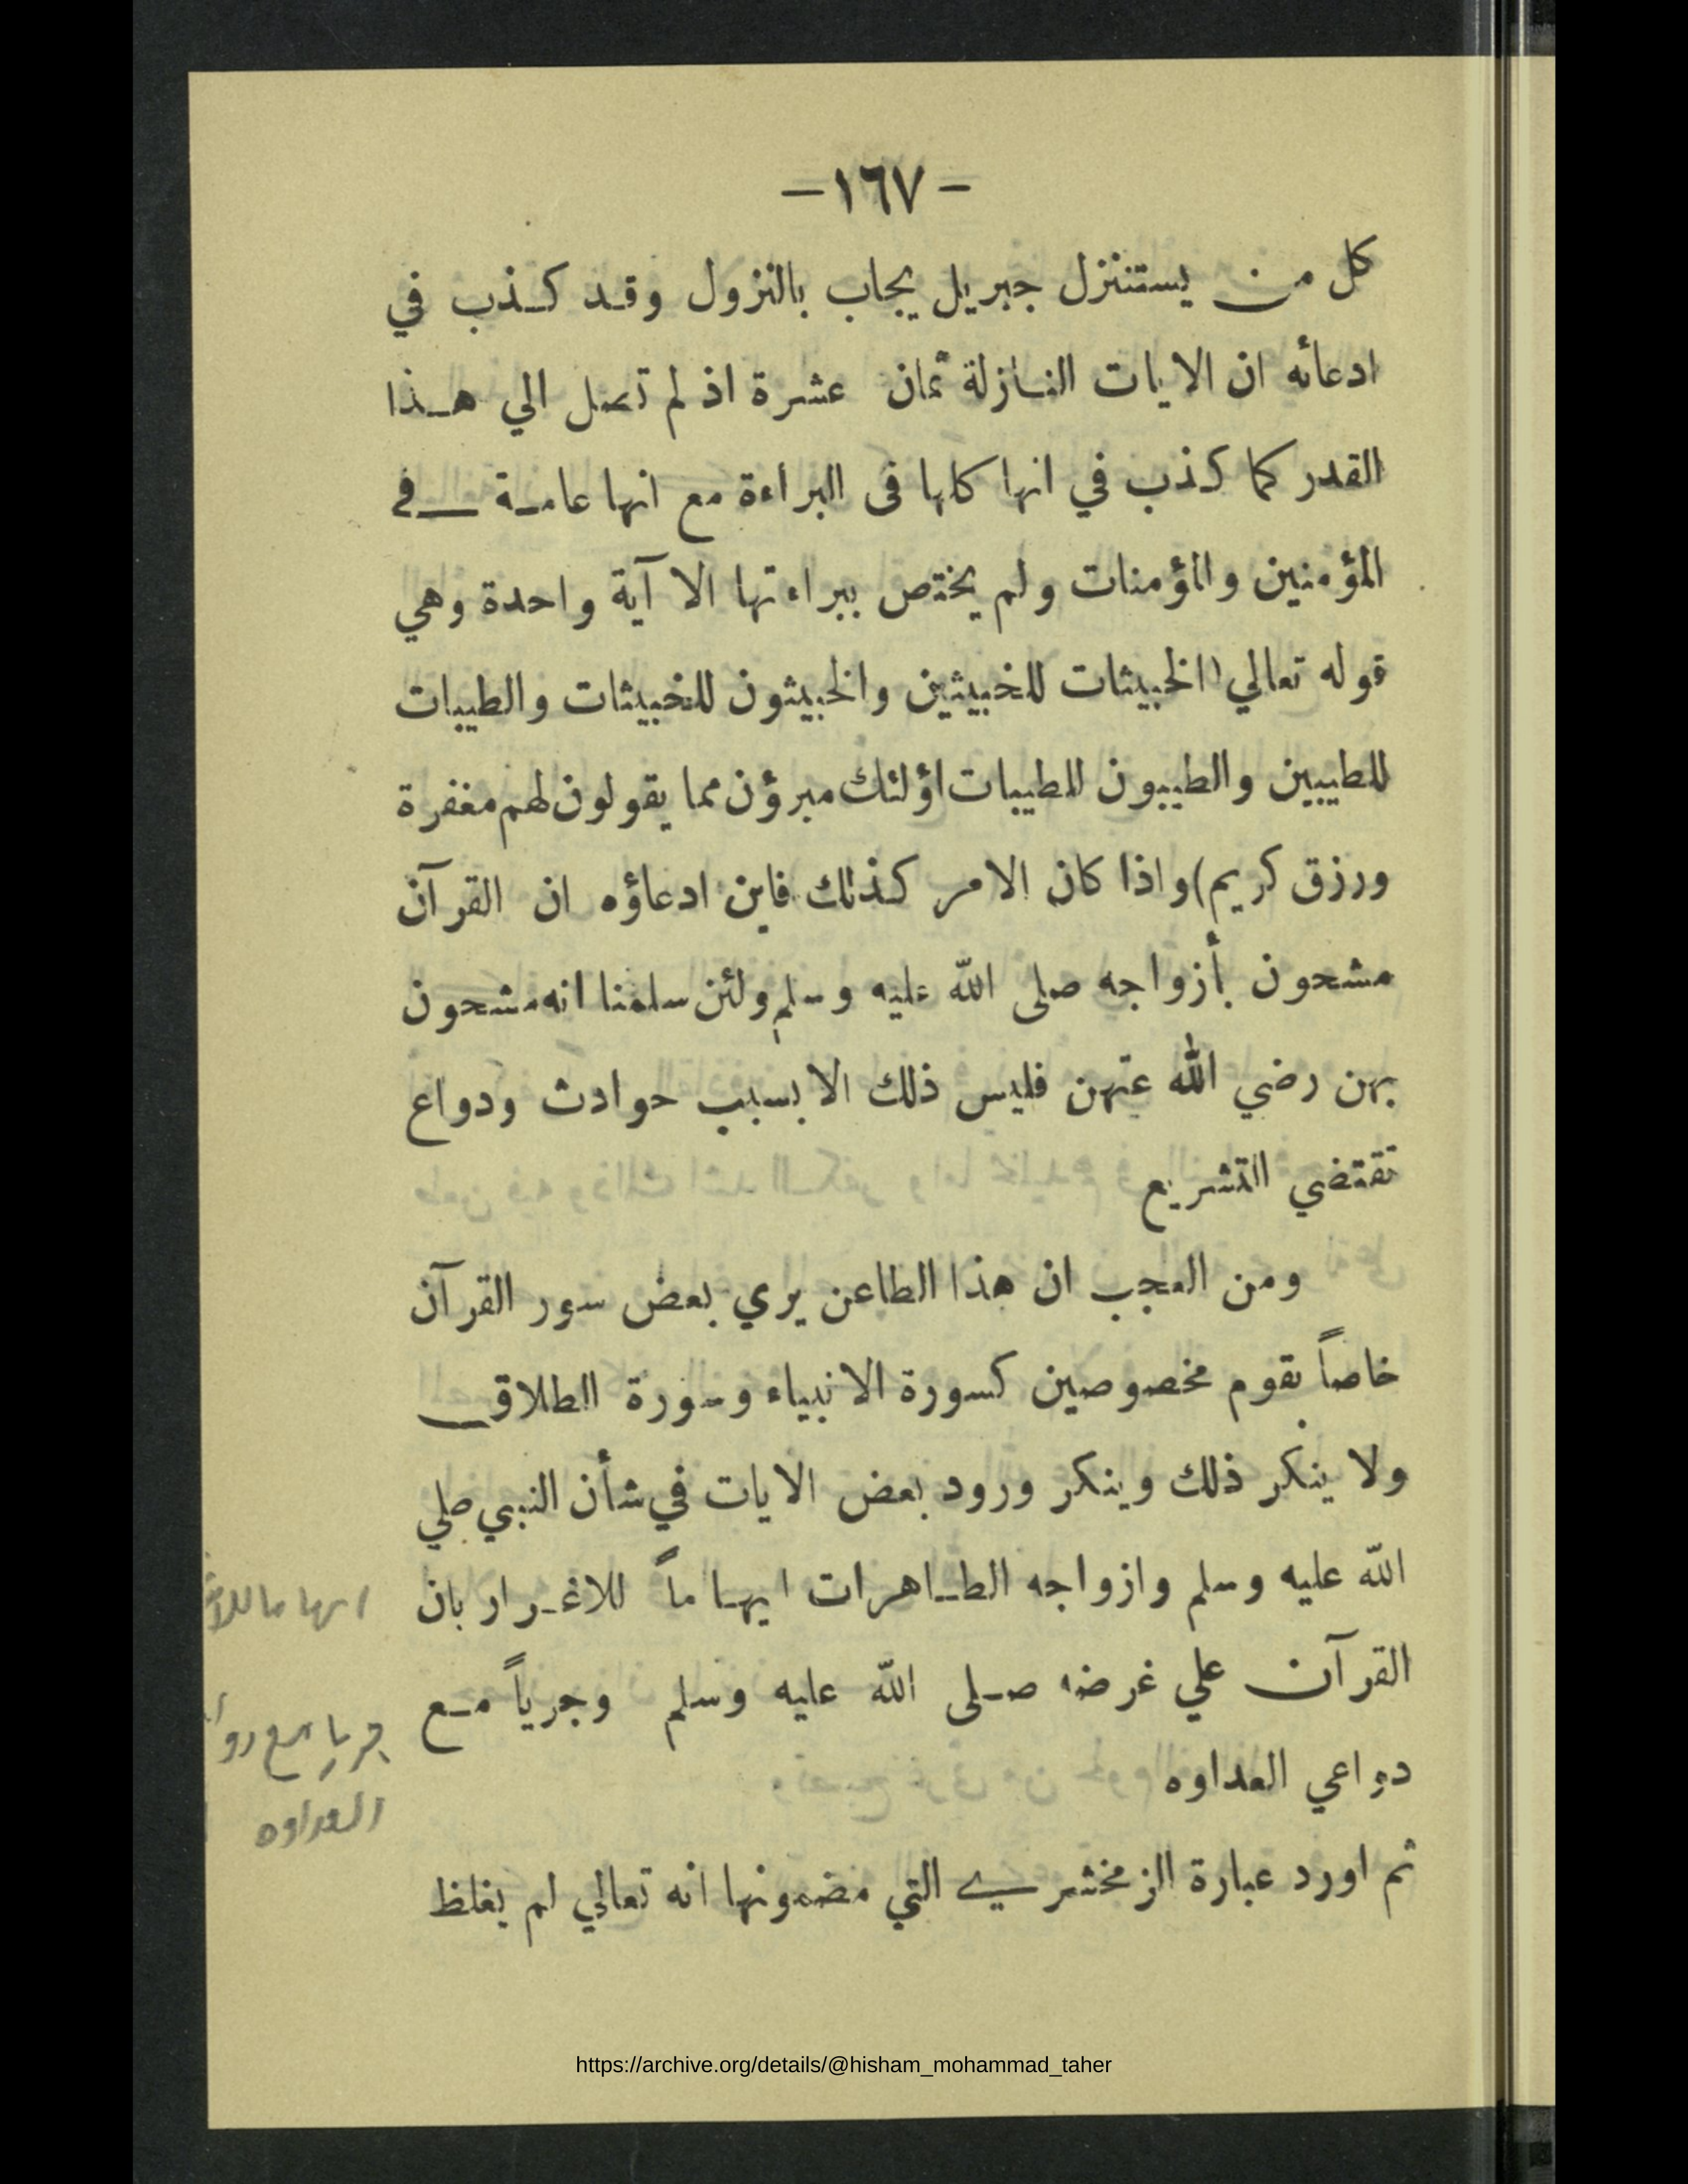 - ١٦٧ -
كل من يستنزل جبريل يجاب بالنزول وقد كذب في
ادعائه ان الايات النازلة ثمان عشرة اذ لم تصل الي هذا
القدر كما كذب في انها كلها في البراءة مع انها عامة في
المؤمنين والمؤمنات ولم يختص ببراءتها الا آية واحدة وهي
قوله تعالي (الخبيثات للخبيثين والخبيثون للخبيثات والطيبات
للطيبين والطيبون للطيبات اؤلئك مبرؤن مما يقولون لهم مغفرة
ورزق كريم) واذا كان الامر كذلك فاين ادعاؤه ان القرآن
مشحون بأزواجه صلى الله عليه وسلم ولئن سلمنا انه مشحون
بهن رضي الله عنهن فليس ذلك الا بسبب حوادث ودواع
تقتضي التشريع
ومن العجب ان هذا الطاعن يري بعض سور القرآن
خاصاً بقوم مخصوصين كسورة الانبياء وسورة الطلاق
ولا ينكر ذلك وينكر ورود بعض الايات في شأن النبي صلي
الله عليه وسلم وازواجه الطاهرات ايهاماً للاغرار بان
القرآن علي غرضه صلى الله عليه وسلم وجرياً مع
دواعي العداوه
ثم اورد عبارة الزمخشري التي مضمونها انه تعالي لم يغلظ
ايهاما
جريا مع
العداوه
https://archive.org/details/@hisham_mohammad_taher